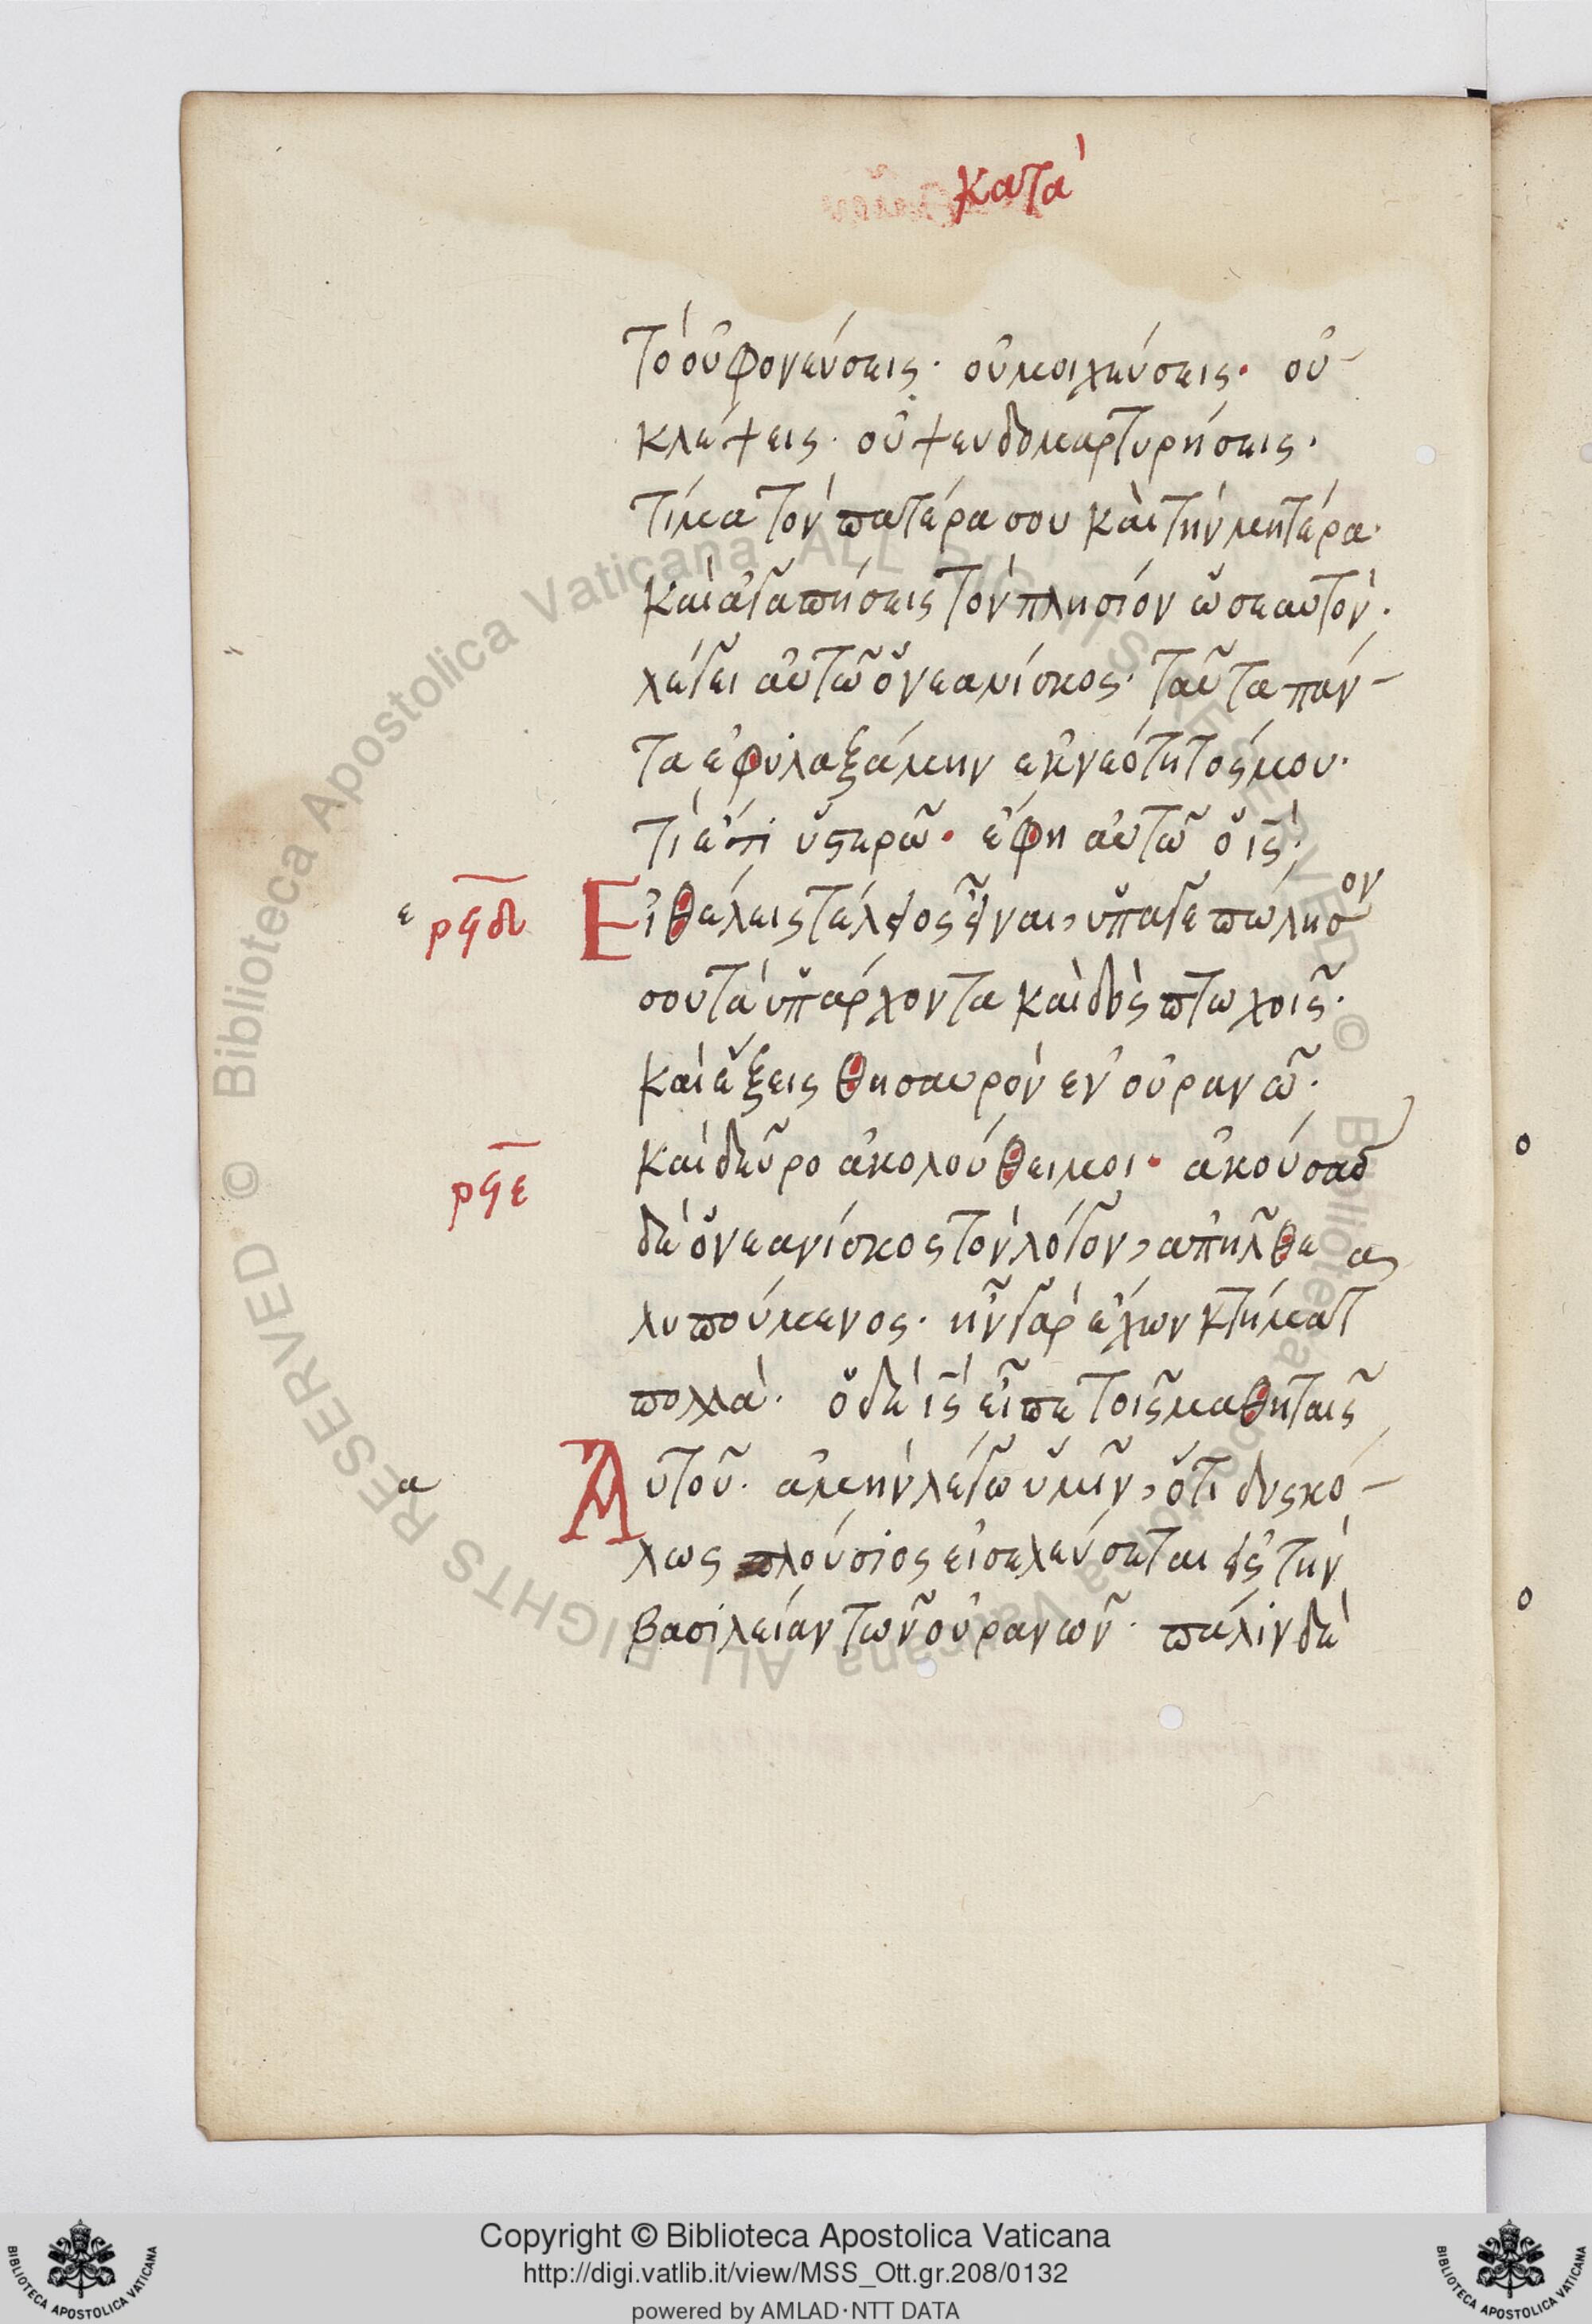 κατὰ
τὸ οὐ φονεύσεις· οὐ μοιχεύσεις· οὐ
κλέψεις· οὐ ψευδομαρτυρήσεις·
τίμα τὸν πατέρα σου καὶ τὴν μητέρα·
καὶ ἀγαπήσεις τὸν πλησίον ὡς σεαυτόν·
λέγει αὐτῶ ὁ νεανίσκος· ταῦτα πάν-
τα ἐφυλαξάμην ἐκ νεότητός μου·
τί ἔτι ὑστερῶ· ἔφη αὐτῶ ὁ ις·
ε ρϟδ Εἰ θέλεις τέλειος εἶναι, ὕπαγε πώλησον
σου τὰ ὑπάρχοντα καὶ δὸς πτωχοῖς·
καὶ ἕξεις θησαυρὸν ἐν οὐρανῶ·
ρϟε καὶ δεῦρο ἀκολούθει μοι· ἀκούσας
δὲ ὁ νεανίσκος τὸν λόγον, ἀπῆλθε
λυπούμενος· ἦν γὰρ ἔχων κτήματα
πολλά· ὁ δὲ ις εἶπε τοῖς μαθηταῖς
α Αὐτοῦ· ἀμὴν λέγω ὑμῖν, ὅτι δυσκό-
λως πλούσιος εἰσελεύσεται εἰς τὴν
βασιλείαν τῶν οὐρανῶν· πάλιν δὲ
© Biblioteca Apostolica Vaticana ALL RIGHTS RESERVED
© Biblioteca Apostolica Vaticana ALL RIGHTS RESERVED
Copyright © Biblioteca Apostolica Vaticana
http://digi.vatlib.it/view/MSS_Ott.gr.208/0132
powered by AMLAD·NTT DATA
BIBLIOTECA APOSTOLICA VATICANA
BIBLIOTECA APOSTOLICA VATICANA